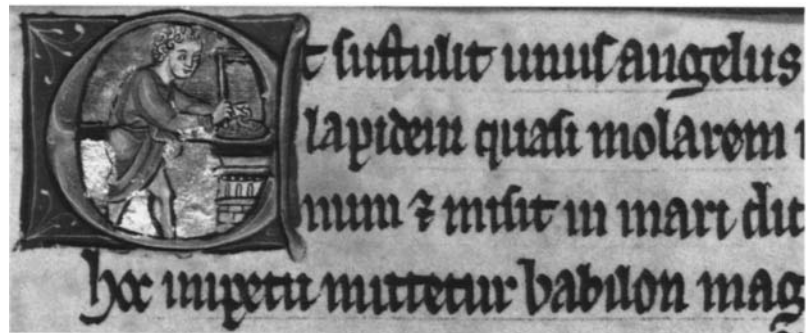 Et sustulit unus angelus
lapidem quasi molarem
num ⁊ misit in mari di
hoc impetu mittetur babilon mag